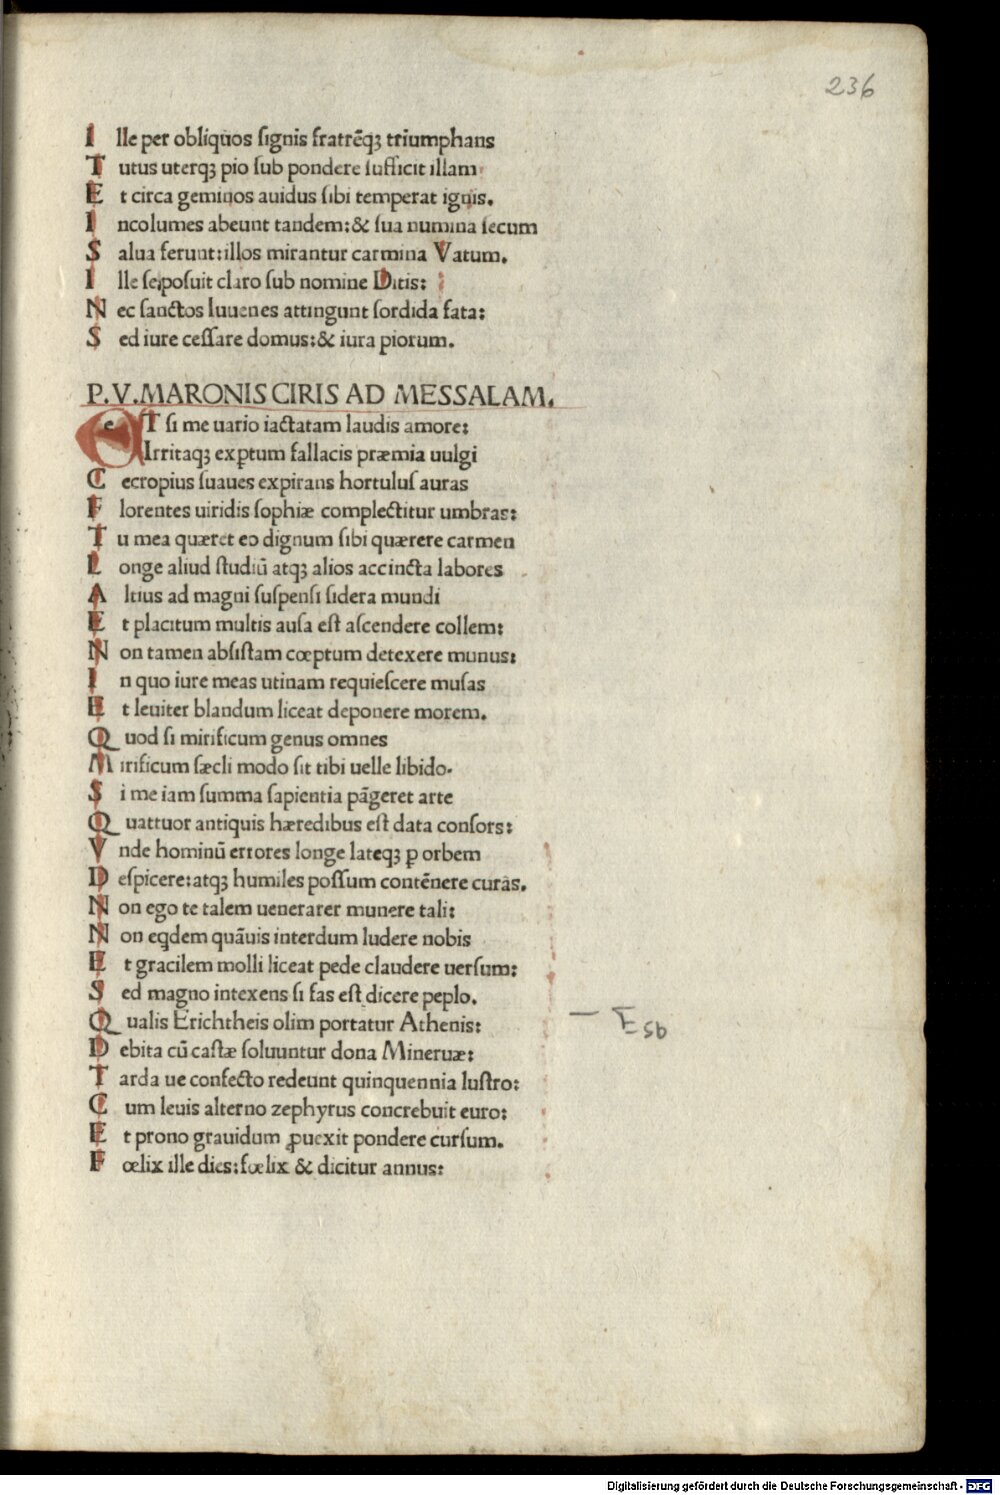 236
Ille per obliquos signis fratrēqꝫ triumphans
Tutus uterqꝫ pio sub pondere sufficit illam
Et circa geminos auidus sibi temperat ignis.
Incolumes abeunt tandem:& sua numina secum
Salua ferunt:illos mirantur carmina Vatum.
Ille seposuit claro sub nomine Ditis:
Nec sanctos Iuuenes attingunt sordida fata:
Sed iure cessare domus:& iura piorum.
P.V.MARONIS CIRIS AD MESSALAM.
ETsi me uario iactatam laudis amore:
Irritaqꝫ exꝑtum fallacis præmia uulgi
Cecropius suaues expirans hortulus auras
Florentes uiridis sophiæ complectitur umbras:
Tu mea quæret eo dignum sibi quærere carmen
Longe aliud studiū atqꝫ alios accincta labores
Altius ad magni suspensi sidera mundi
Et placitum multis ausa est ascendere collem:
Non tamen absistam cœptum detexere munus:
In quo iure meas utinam requiescere musas
Et leuiter blandum liceat deponere morem.
Quod si mirificum genus omnes
Mirificum sæcli modo sit tibi uelle libido.
Si me iam summa sapientia pāgeret arte
Quattuor antiquis hæredibus est data consors:
Vnde hominū errores longe lateqꝫ ꝑ orbem
Despicere:atqꝫ humiles possum contēnere curas.
Non ego te talem uenerarer munere tali:
Non eqdem quāuis interdum ludere nobis
Et gracilem molli liceat pede claudere uersum:
Sed magno intexens si fas est dicere peplo.
Qualis Erichtheis olim portatur Athenis:
Debita cū castæ soluuntur dona Mineruæ:
Tarda ue confecto redeunt quinquennia lustro:
Cum leuis alterno zephyrus concrebuit euro:
Et prono grauidum ꝓuexit pondere cursum.
Fœlix ille dies:fœlix & dicitur annus:
Digitalisierung gefördert durch die Deutsche Forschungsgemeinschaft - DFG